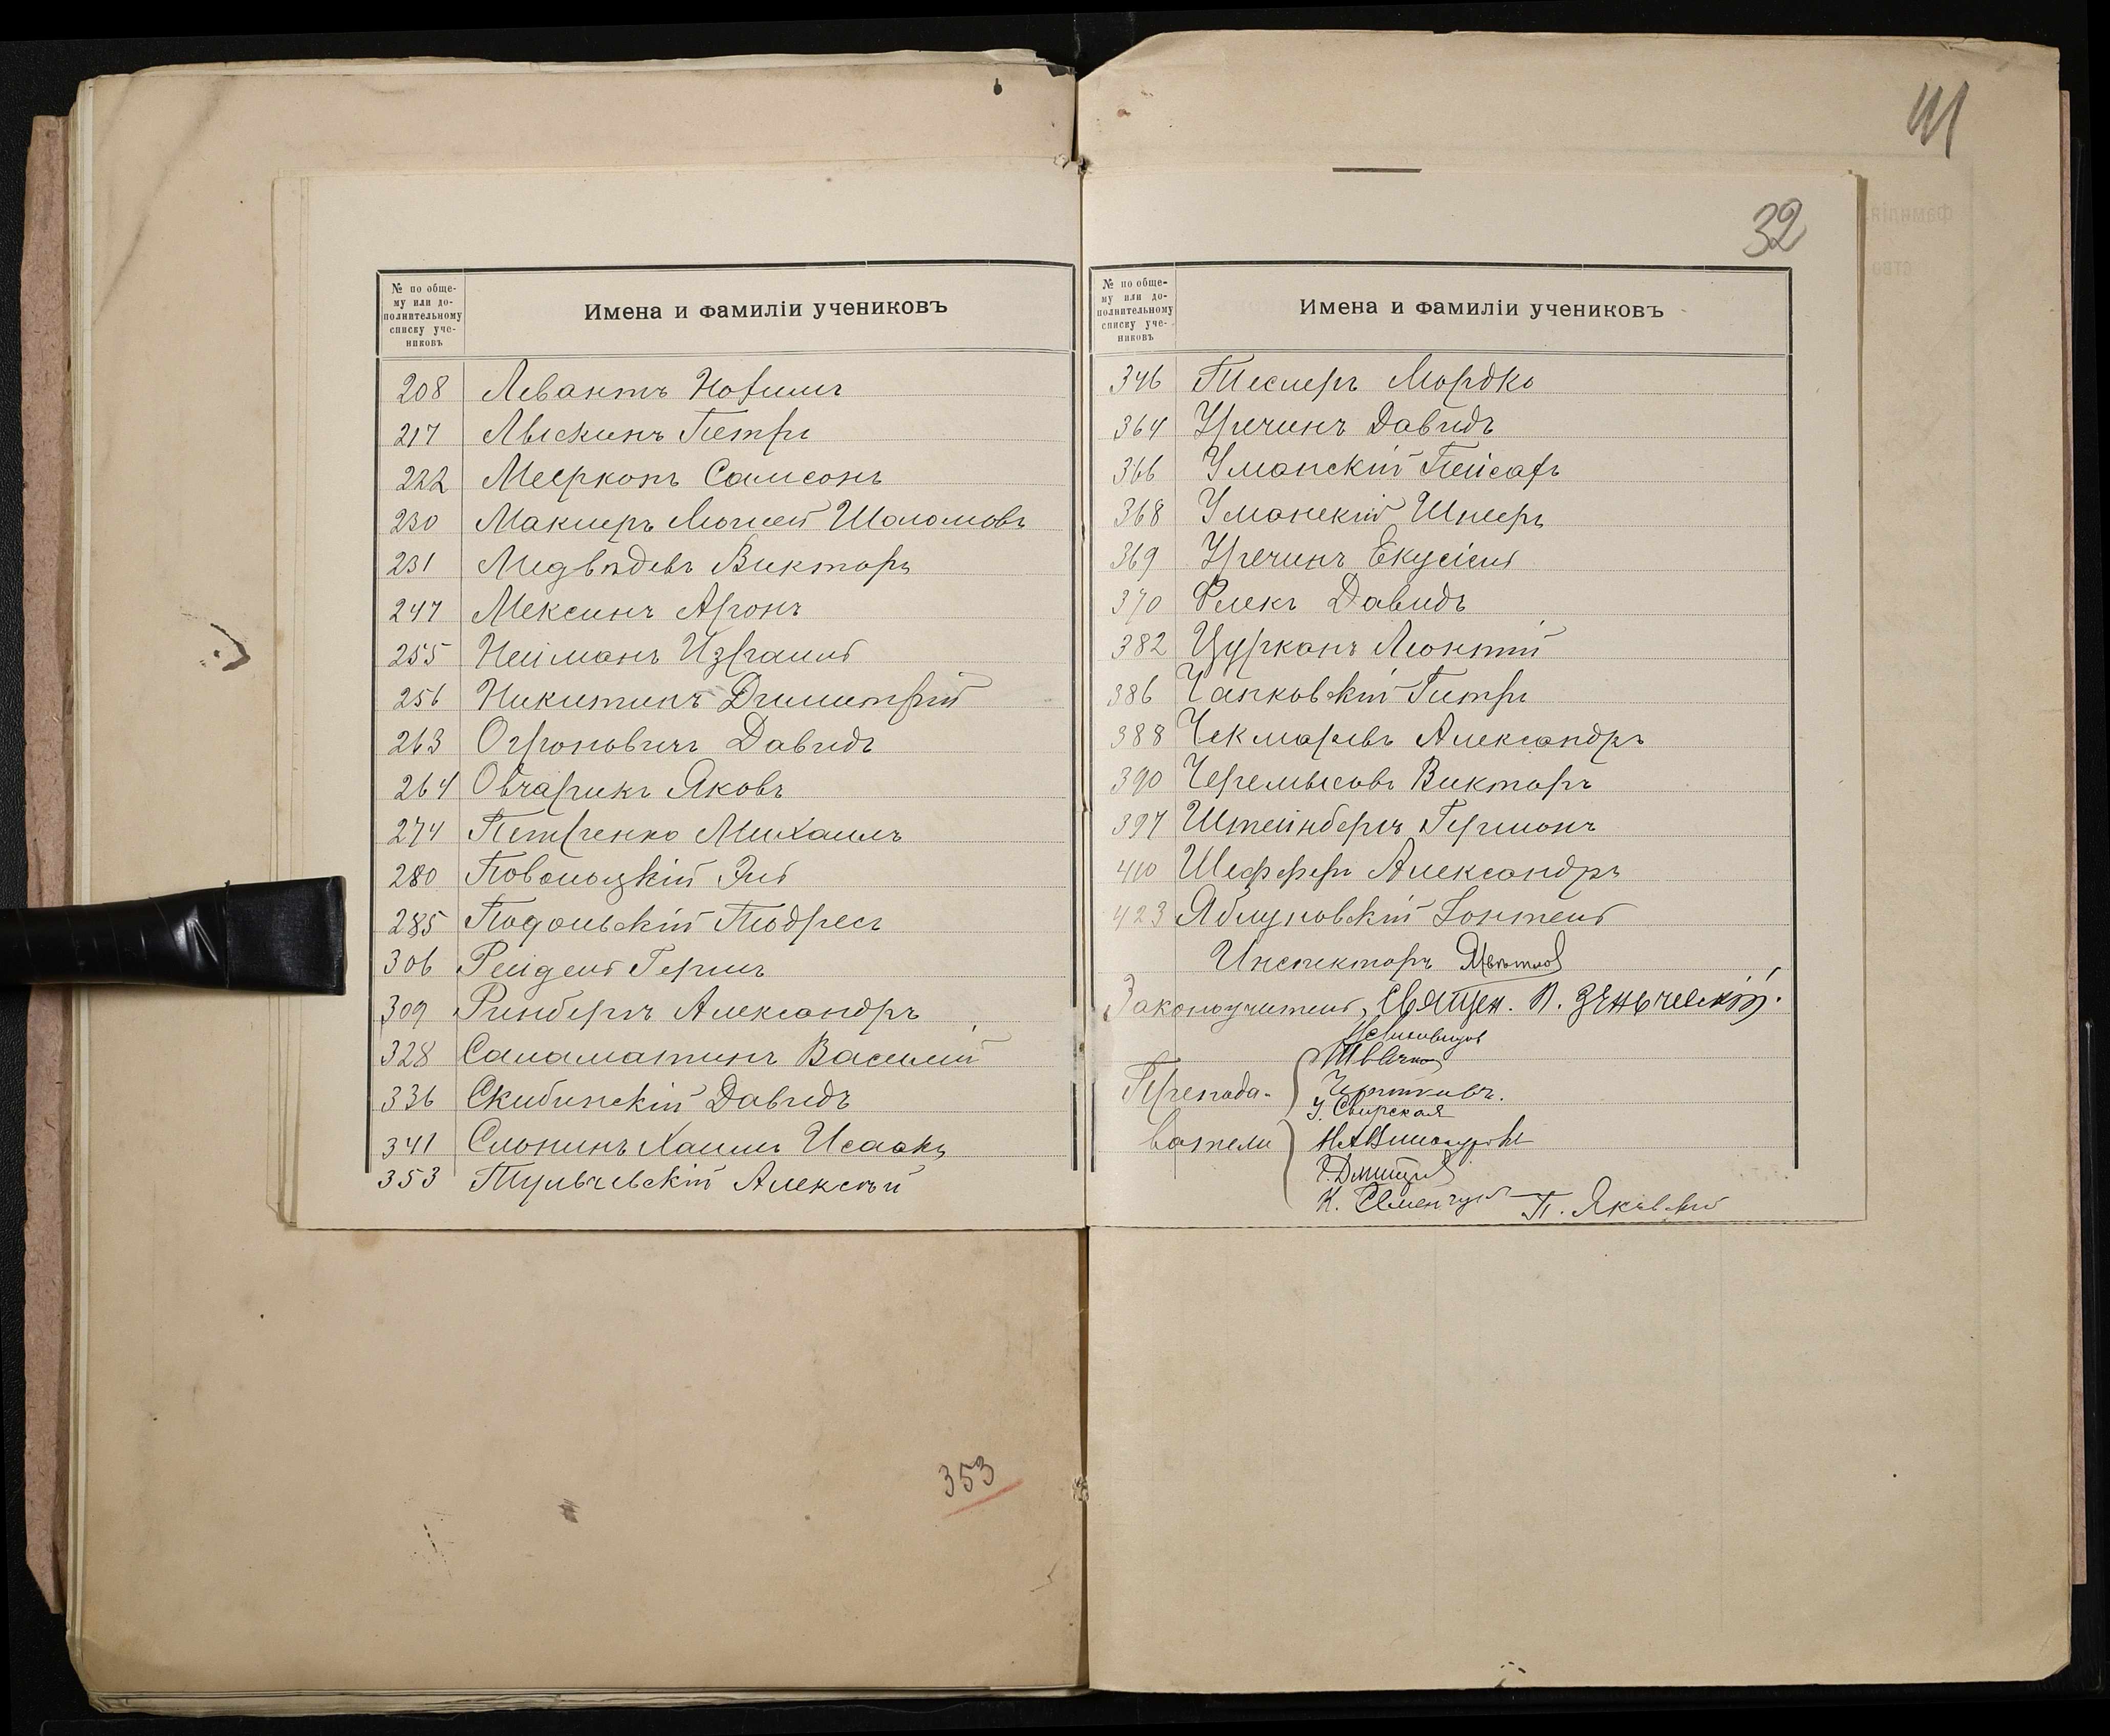 41
32
№ по обще-
му или до-
полнительному
списку уче-
никовъ
Имена и фамиліи учениковъ
208 Левантъ Нохимъ
217 Лыскинъ Петръ
222 Мееркопъ Самсонъ
230 Макмеръ Мошей Шоломовъ
231 Медвѣдевъ Викторъ
247 Мексинъ Аронъ
255 Нейманъ Израиль
256 Никитинъ Димитрій
263 Огроновичъ Давидъ
264 Овчарикъ Яковъ
274 Петренко Михаилъ
280 Поволоцкій Эль
285 Подольскій Тодресъ
306 Рейдель Гершъ
309 Ринбергъ Александръ
328 Саламатинъ Василій
336 Скибинскій Давидъ
341 Слонимъ Хаимъ Исаакъ
353 Тульчевскій Алексѣй
№ по обще-
му или до-
полнительному
списку уче-
никовъ
Имена и фамиліи учениковъ
346 Теслеръ Мордко
364 Уречинъ Давидъ
366 Уманскій Пейсахъ
368 Уманскій Шнееръ
369 Уречинъ Екусіель
370 Флекъ Давидъ
382 Цурканъ Леонтій
386 Чапковскій Петръ
388 Чекмаревъ Александръ
390 Черемысовъ Викторъ
397 Штейнбергъ Германъ
410 Шефферъ Александръ
423 Яблуновскій Зонтель
Инспекторъ
Законоучитель, Священ. П. Зеньческій.
Препода-
У. Свирская
ватели
К. Семенчук П. Яковлев
353